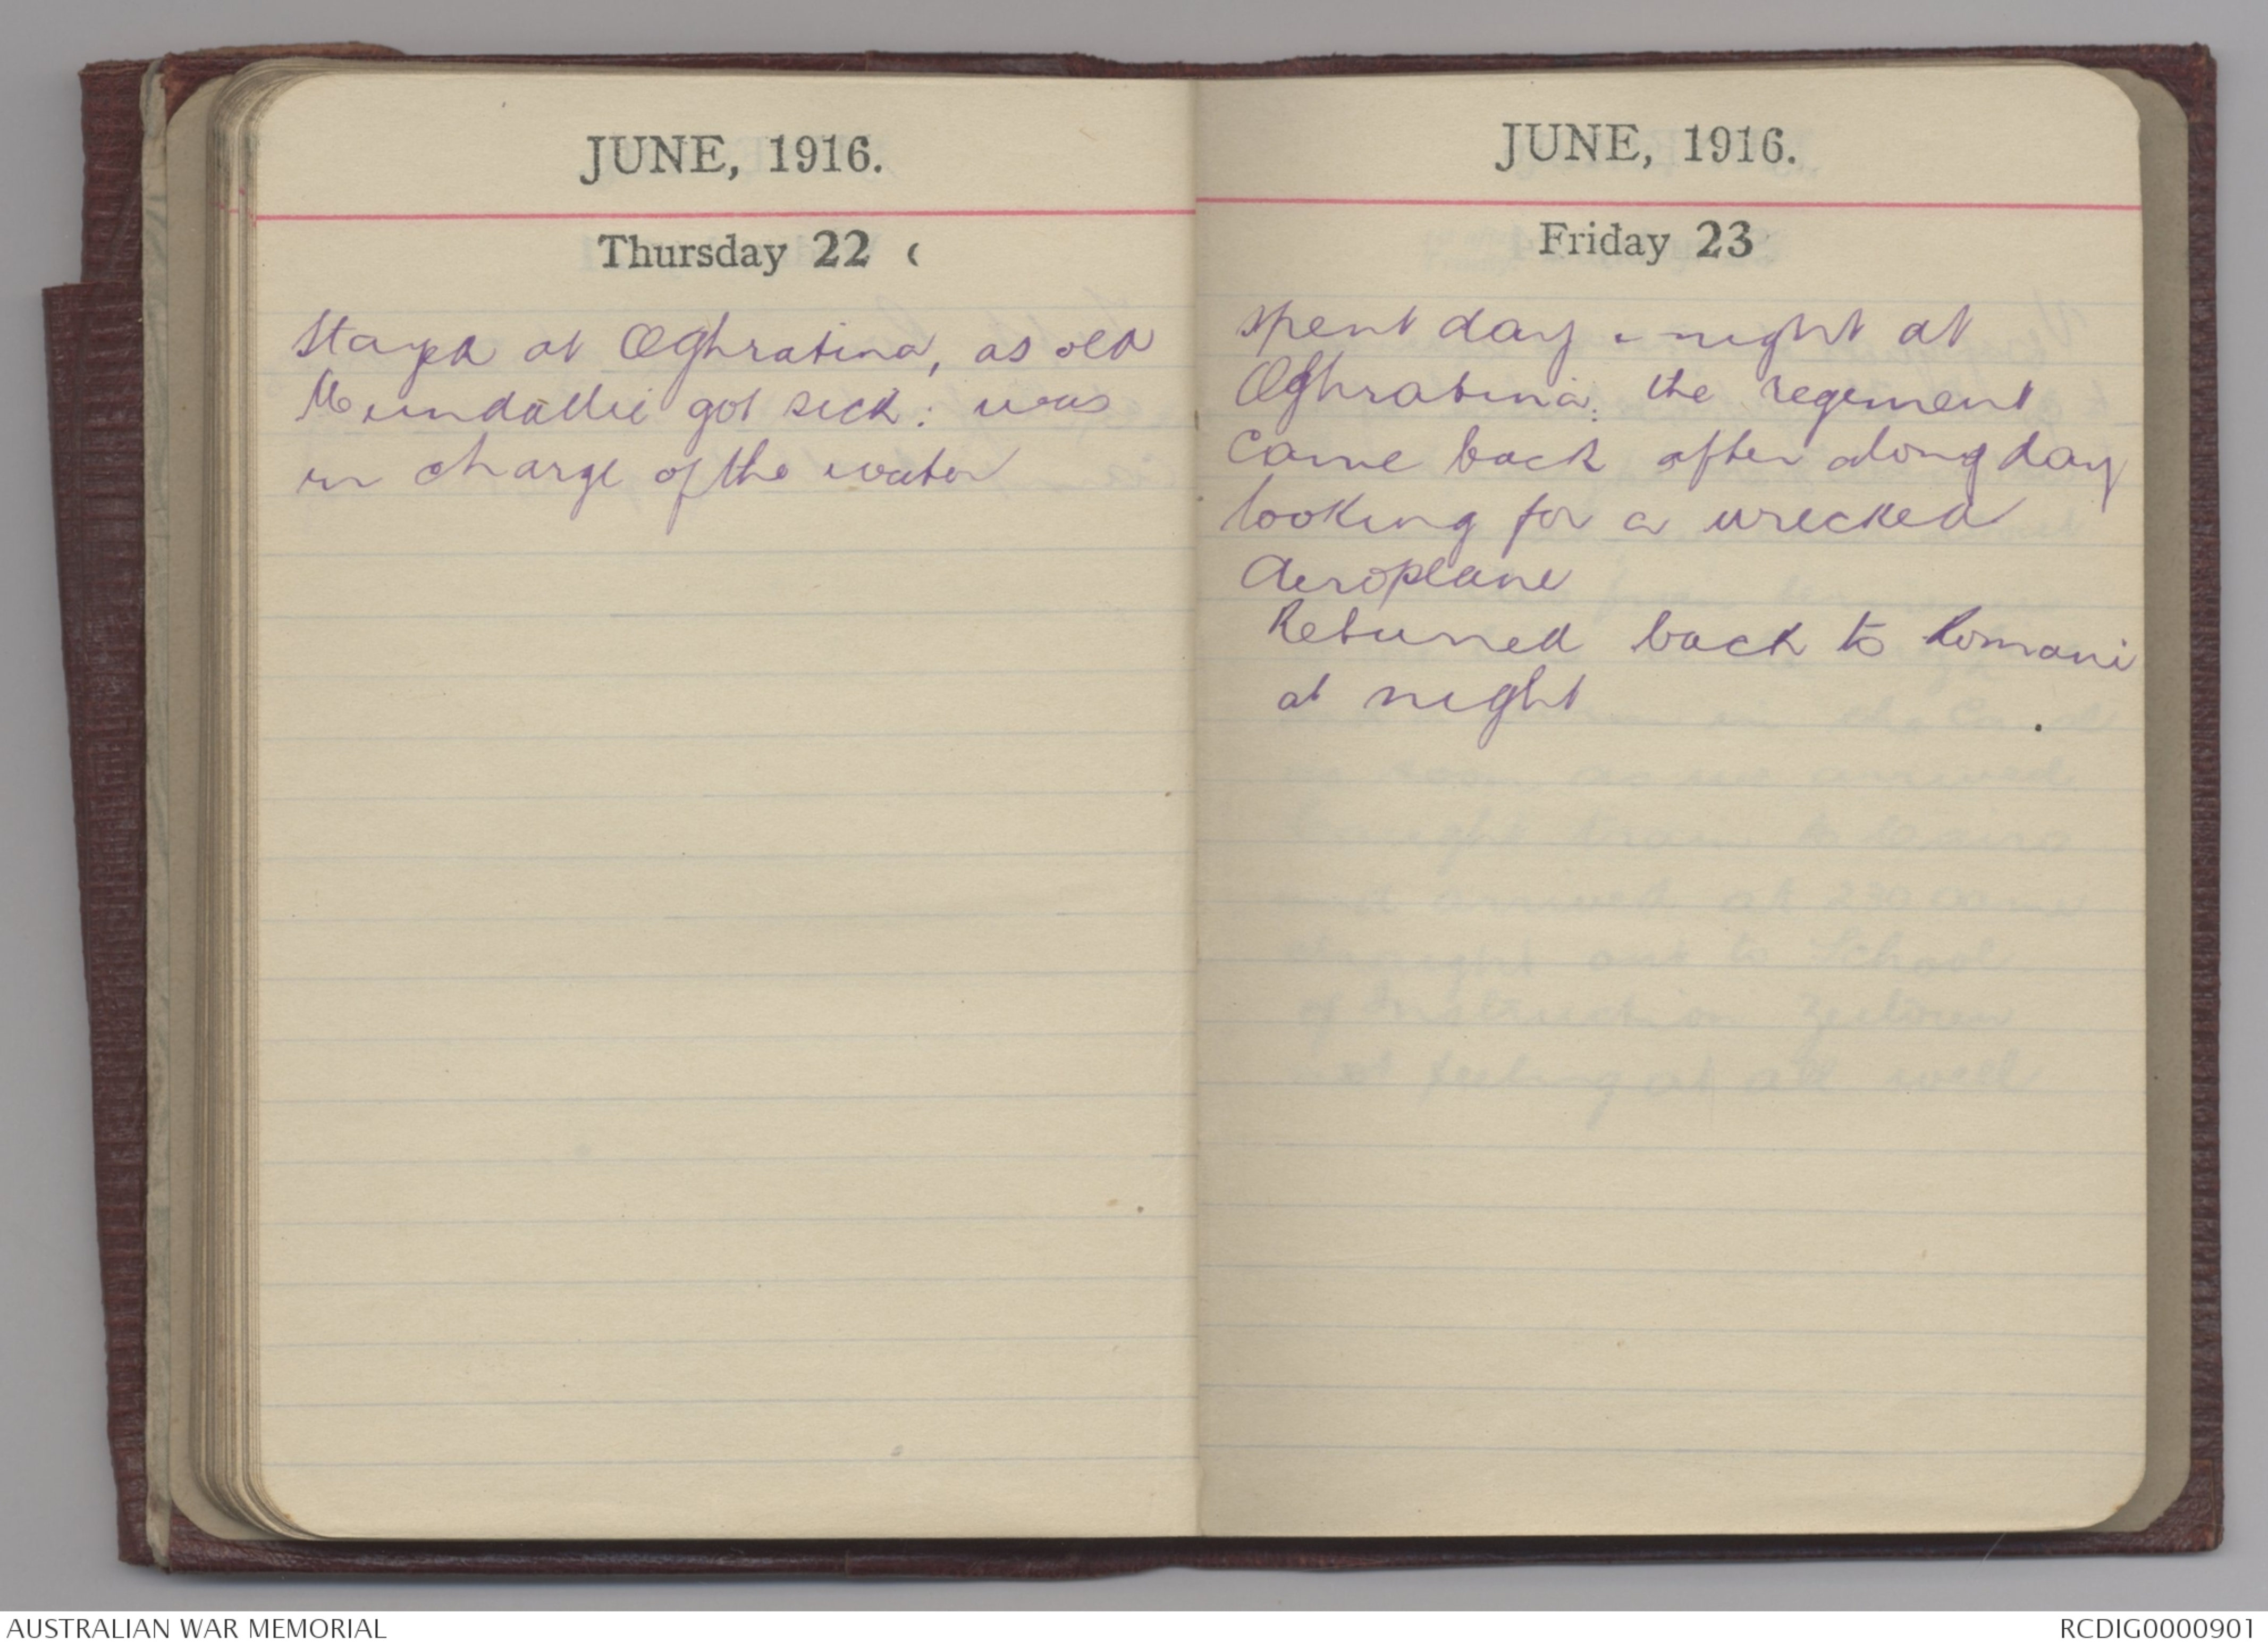 JUNE, 1916.
Thursday 22
Stayed at Oghratina, as old
Mundallie got sick: was
in charge of the water
JUNE, 1916.
Friday 23
spent day & night at
Oghratina: the regement
came back after a long day
looking for a wrecked
Aeroplane
Returned back to Romani
at night
AUSTRALIAN WAR MEMORIAL
RCDIG0000901